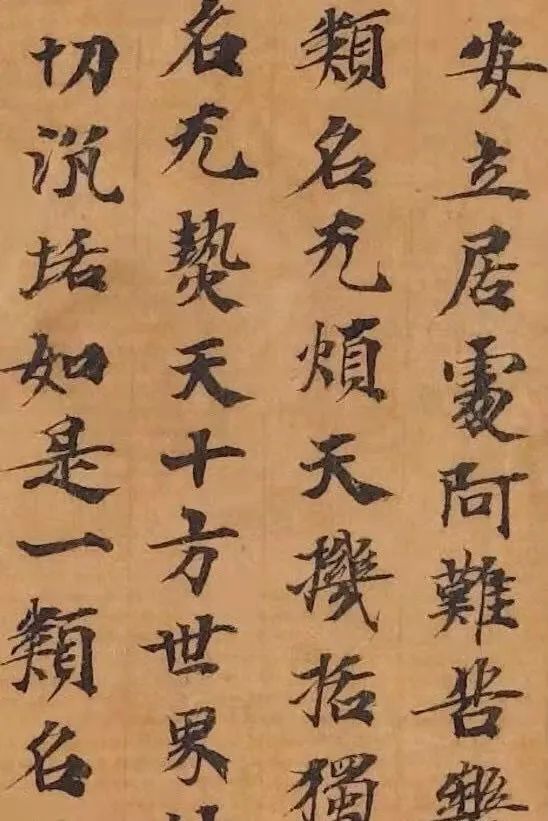 安立居處阿難苦樂
類名无煩天機括獨
名无熱天十方世界
切沉垢如是一類名